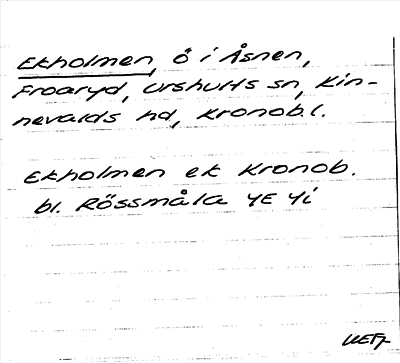 Ekholmen, ö i Åsnen,
Froaryd, Urshults sn, Kin-
nevalds hd, Kronob.l.
Ekholmen ek Kronob.
bl. Rössmåla 4E 4i